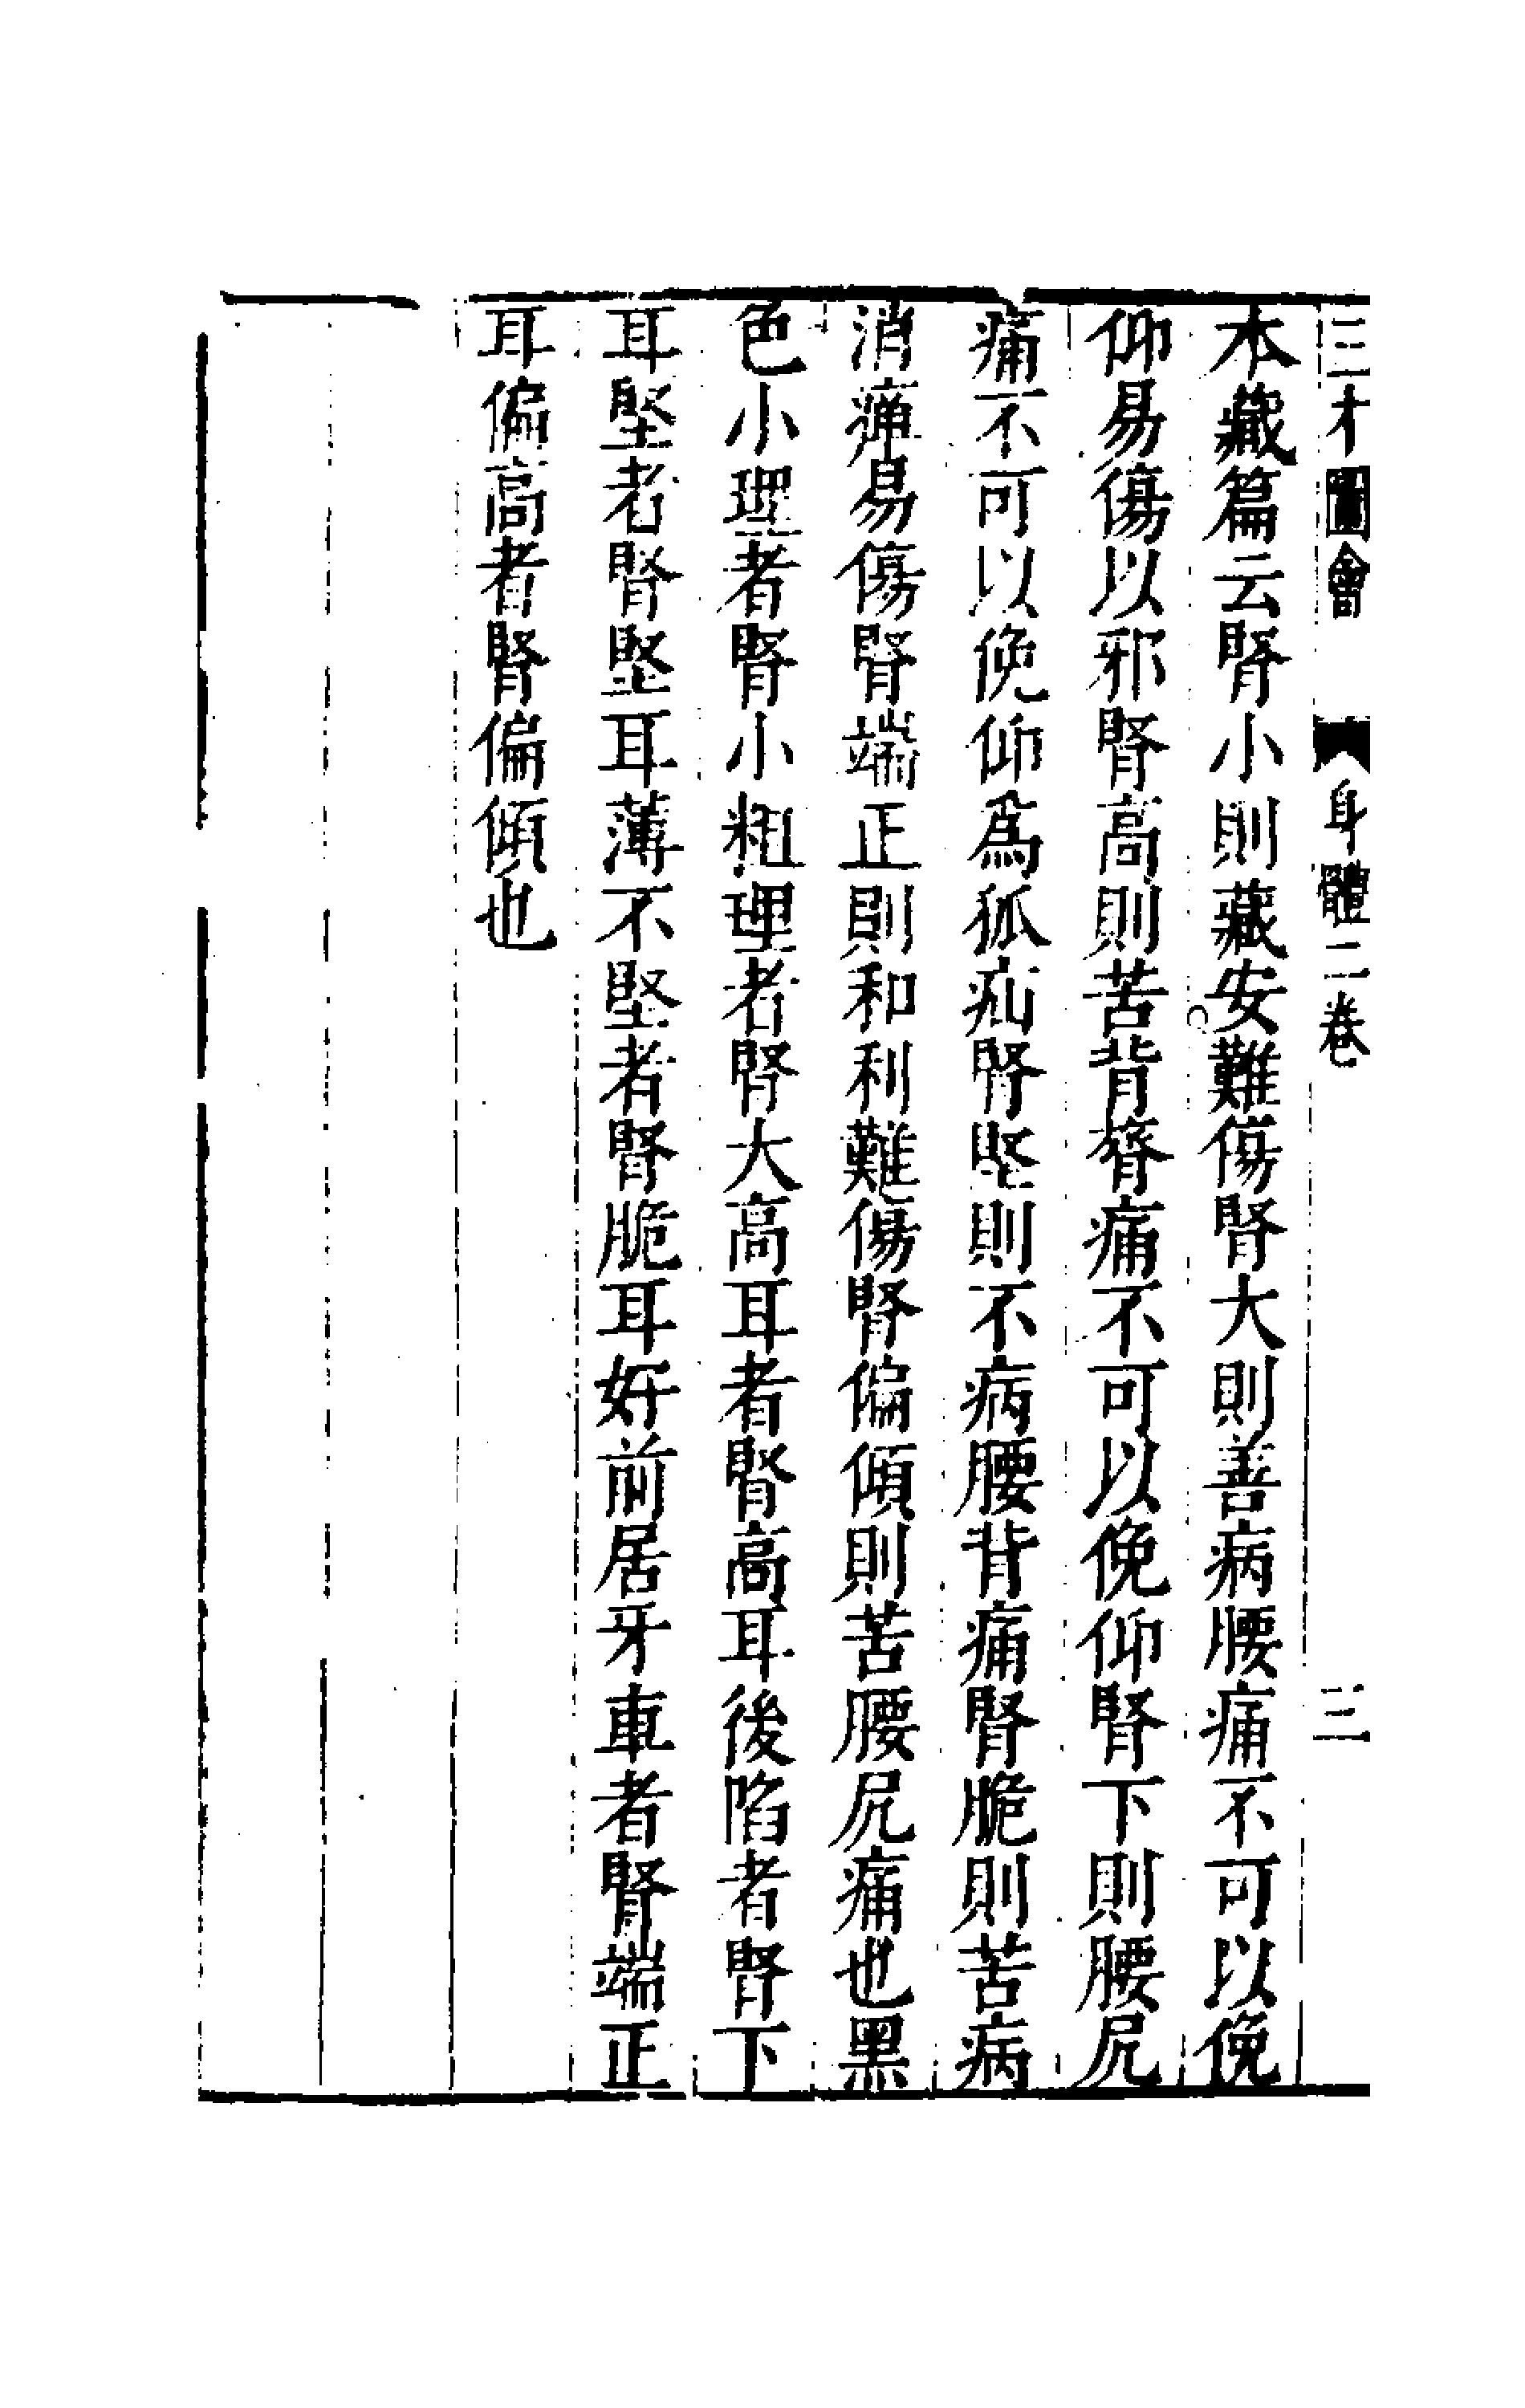 三才圖會 身體二卷 三
本藏篇云腎小則藏安難傷腎大則善病腰痛不可以俛
仰易傷以邪腎高則苦背膂痛不可以俛仰腎下則腰尻
痛不可以俛仰為狐疝腎堅則不病腰背痛腎脆則苦病
消癉易傷腎端正則和利難傷腎偏傾則苦腰尻痛也黑
色小理者腎小粗理者腎大高耳者腎高耳後陷者腎下
耳堅者腎堅耳薄不堅者腎脆耳好前居牙車者腎端正
耳偏高者腎偏傾也